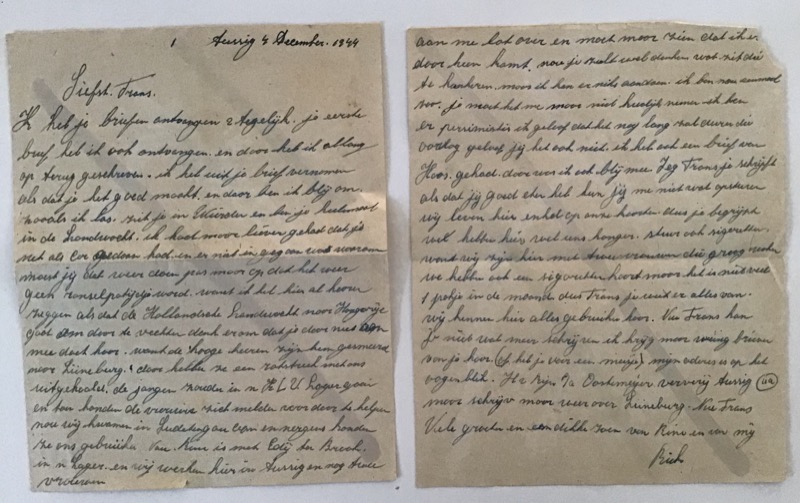 1 Aussig 4 December. 1944
Liefst. Frans.
Ik heb je brieven ontvangen 2 tegelijk. je eerste
brief heb ik ook ontvangen. en daar heb ik allang
op terug geschreven. ik heb uit je brief vernomen
als dat je het goed maakt. en daar ben ik blij om.
zooals ik las. zit je in Münster en ben je helemaal
in de Landwacht. ik had maar liever gehad dat je
net als Cor gedaan had. en er niet in gegaan was waarom
moest jij dat weer doen pas maar op dat het weer
geen ronselpartijtje word. want ik heb hier al hooren
zeggen als dat de Hollandsche Landwacht naar Hongarije
gaat om daar te vechten denk erom dat je daar niet aan
mee doet hoor. want de hooge heeren zijn hem gesmeerd
naar Lüneburg. daar hebben ze een rotstreek met ons
uitgehaald. de jongen zouden in 'n H L U lager gaan
en dan konden de vrouwen zich melden voor daar te helpen
nou wij kwamen in Sudetengau aan en nergens konden
ze ons gebruiken. is met Edij den Broek.
in 'n lager. en wij werken hier in Aussig en nog twee
vrouwen
aan me lot over en moet maar zien dat ik er
door heen komt. nou je zult wel denken wat zit die
te kankeren. maar ik kan er niets aandoen. ik ben nou eenmaal
zoo. je moet het me maar niet kwalijk nemen ik ben
er pessimistis ik geloof dat het nog lang zal duren die
oorlog geloof jij het ook niet. ik heb ook een brief van
Koos. gehad. daar was ik ook blij mee. Zeg Frans je schrijft
als dat jij goed eten heb kan jij me niet wat opsturen
wij leven hier enkel op onze kaarten. dus je begrijpt
wel hebben hier wel eens honger. stuur ook sigaretten.
want wij zijn hier met twee vrouwen die graag rooken
we hebben ook een sigaretten kaart maar het is niet veel
1 pakje in de maand dus Frans je weet er alles van.
wij kunnen hier alles gebruiken hoor. Nu Frans kan
je niet wat meer schrijven ik krijg maar weinig brieven
van je hoor. (of heb je daar een meisje) mijn adres is op het
oogenblik. Oostmeijer ververij Aussig
maar schrijv maar weer over Lüneburg. Nu Frans
Vele groeten en een dikke zoen van Rino en van mij
Riek